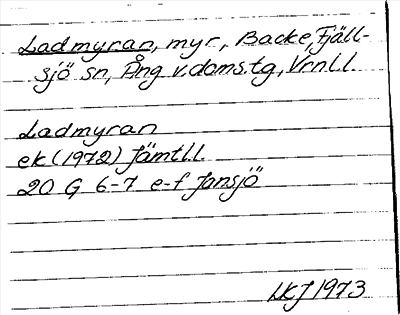 Ladmyran, myr, Backe, Fjäll-
sjö sn, Ång v.doms.tg, Vrnl.l.
Ladmyran
ek (1972) Jämtl.l.
20 G 6-7 e-f Jansjö
LKJ 1973